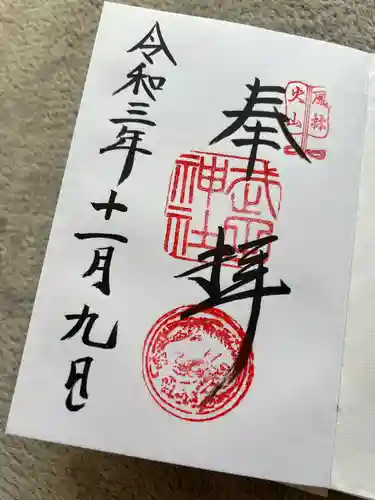 風林
火山
奉拝
武田神社
令和三年十一月九日